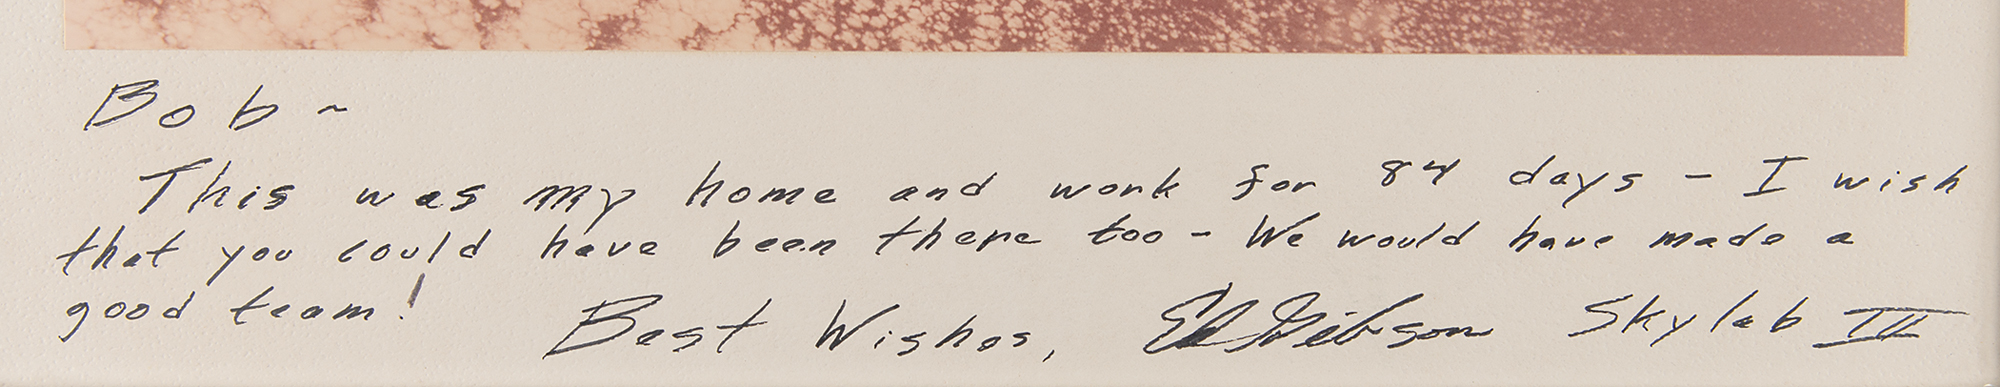 Bob ~
This was my home and work for 84 days - I wish
that you could have been there too - We would have made a
good team! Best Wishes, Ed Gibson Skylab IV